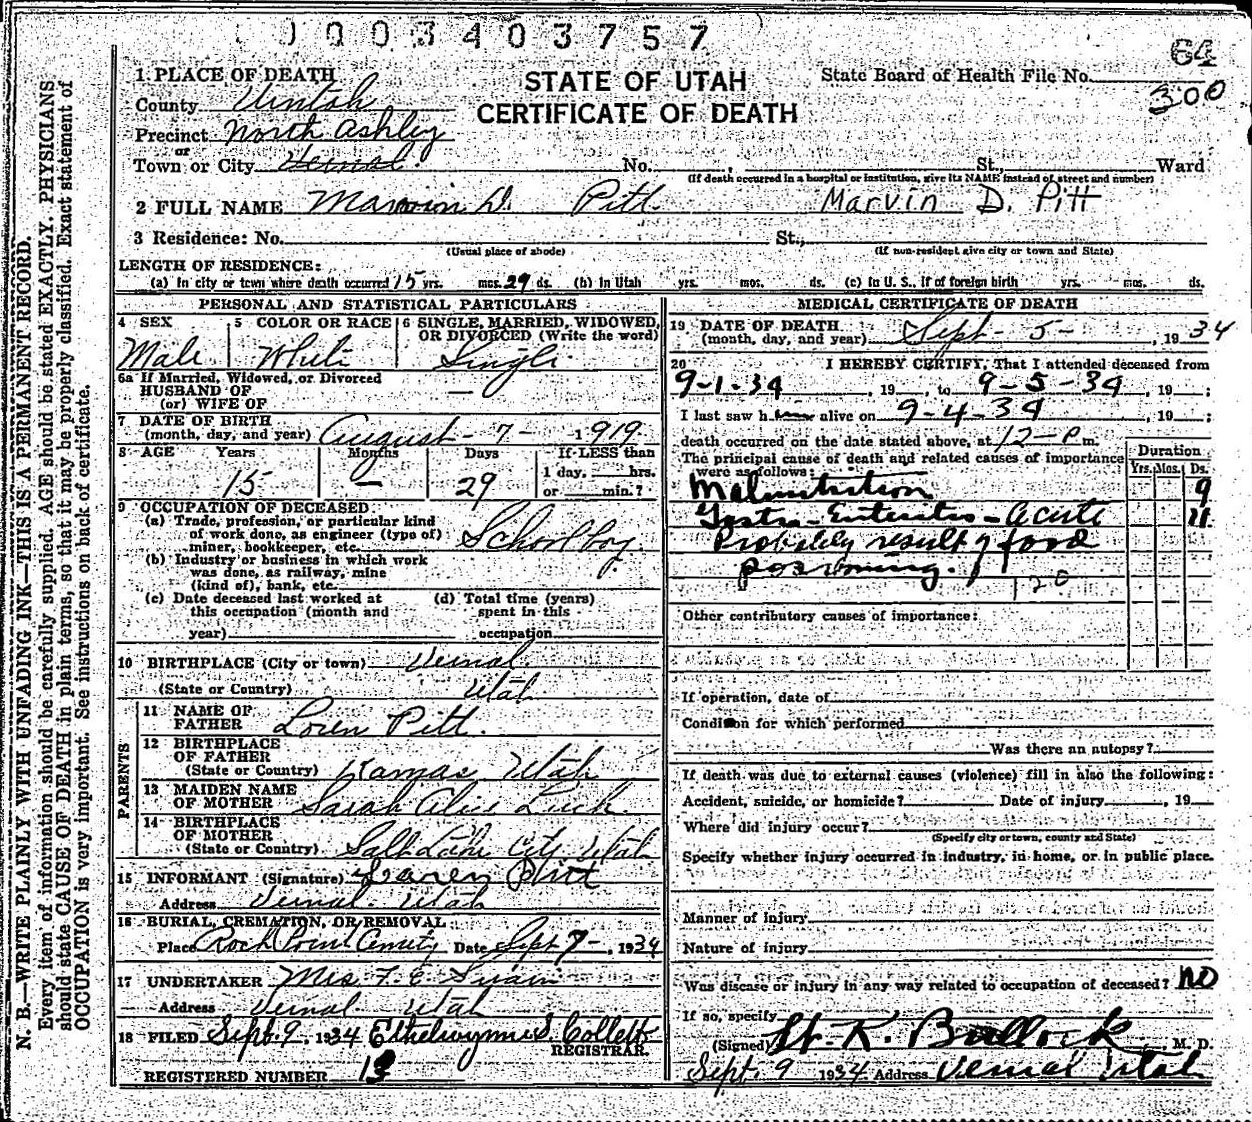 0003403757
64
300
1. PLACE OF DEATH
STATE OF UTAH
State Board of Health File No.
County Uintah
CERTIFICATE OF DEATH
Precinct North Ashley
or
Town or City Vernal. No. , St., Ward
(If death occurred in a hospital or institution, give its NAME instead of street and number)
2 FULL NAME Marvin D. Pitt. Marvin D. Pitt
3 Residence: No. St.,
(Usual place of abode) (If non-resident give city or town and State)
LENGTH OF RESIDENCE:
(a) In city or town where death occurred 15 yrs. mos. 29 ds. (b) In Utah yrs. mos. ds. (c) In U. S., if of foreign birth yrs. mos. ds.
PERSONAL AND STATISTICAL PARTICULARS
4 SEX Male
5 COLOR OR RACE White
6 SINGLE, MARRIED, WIDOWED, OR DIVORCED (Write the word) Single
6a If Married, Widowed, or Divorced
HUSBAND OF
(or) WIFE OF —
7 DATE OF BIRTH
(month, day, and year) August - 7 - 1919
8 AGE Years Months Days If LESS than
1 day, hrs.
15 — 29 or min.?
9 OCCUPATION OF DECEASED
(a) Trade, profession, or particular kind
of work done, as engineer (type of)
miner, bookkeeper, etc. Schoolboy
(b) Industry or business in which work
was done, as railway, mine
(kind of), bank, etc.
(c) Date deceased last worked at
this occupation (month and
year)
(d) Total time (years)
spent in this
occupation
10 BIRTHPLACE (City or town) Vernal
(State or Country) Utah
PARENTS
11 NAME OF
FATHER Loren Pitt.
12 BIRTHPLACE
OF FATHER
(State or Country) Kamas, Utah
13 MAIDEN NAME
OF MOTHER Sarah Alice
14 BIRTHPLACE
OF MOTHER
(State or Country) Salt Lake City Utah
15 INFORMANT (Signature) Pitt
Address Vernal. Utah
16 BURIAL, CREMATION, OR REMOVAL
Place Rock Point Date Sept 7 -, 1934
17 UNDERTAKER Mrs. F. E. Swain
Address Vernal. Utah
18 FILED Sept. 9, 1934 S. Collett
REGISTRAR.
REGISTERED NUMBER 13
MEDICAL CERTIFICATE OF DEATH
19 DATE OF DEATH
(month, day, and year) Sept - 5 - , 1934
20 I HEREBY CERTIFY, That I attended deceased from
9-1-34, 19 , to 9-5-34, 19 ;
I last saw h im alive on 9-4-34, 19 ;
death occurred on the date stated above, at 12-P m.
The principal cause of death and related causes of importance
were as follows:
Duration
Yrs. Mos. Ds.
Malnutrition 9
Gastro-Enteritis - acute 11
Probably result of food
poisoning.
120
Other contributory causes of importance:
If operation, date of
Condition for which performed
Was there an autopsy?
If death was due to external causes (violence) fill in also the following:
Accident, suicide, or homicide? Date of injury , 19
Where did injury occur?
(Specify city or town, county and State)
Specify whether injury occurred in industry, in home, or in public place.
Manner of injury
Nature of injury
Was disease or injury in any way related to occupation of deceased? NO
If so, specify
(Signed) K. Bullock, M. D.
Sept. 9 1934 Address Vernal Utah
N. B.—WRITE PLAINLY WITH UNFADING INK—THIS IS A PERMANENT RECORD.
Every item of information should be carefully supplied. AGE should be stated EXACTLY. PHYSICIANS
should state CAUSE OF DEATH in plain terms, so that it may be properly classified. Exact statement of
OCCUPATION is very important. See instructions on back of certificate.